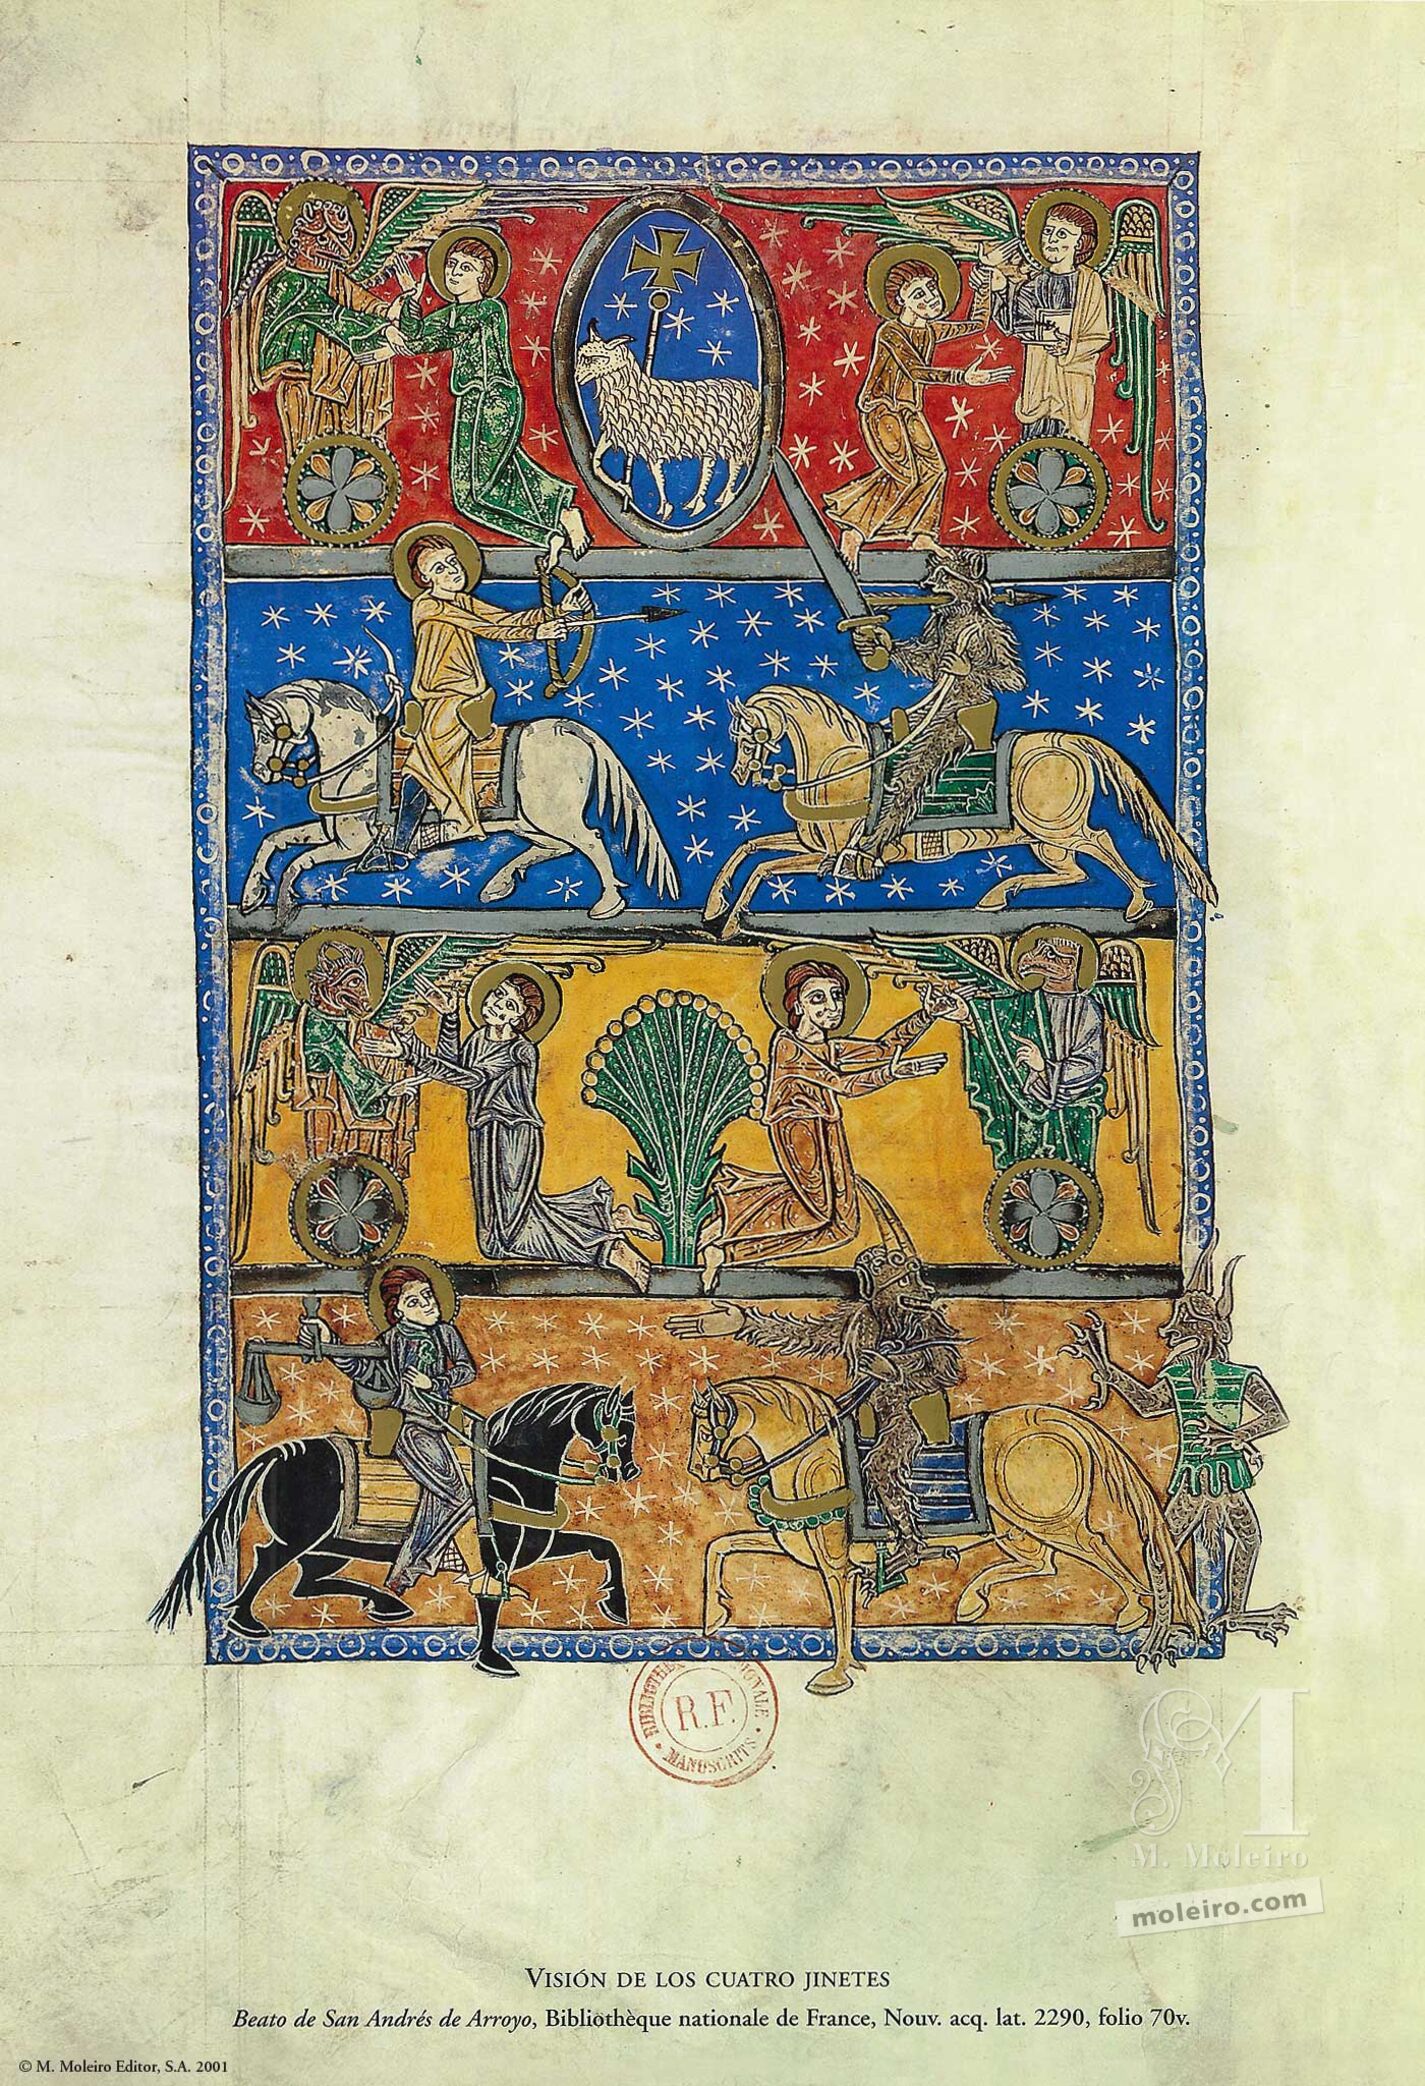 BIBLIOTHÈQUE NATIONALE
R.F.
MANUSCRITS
M
M. Moleiro
moleiro.com
VISIÓN DE LOS CUATRO JINETES
Beato de San Andrés de Arroyo, Bibliothèque nationale de France, Nouv. acq. lat. 2290, folio 70v.
© M. Moleiro Editor, S.A. 2001